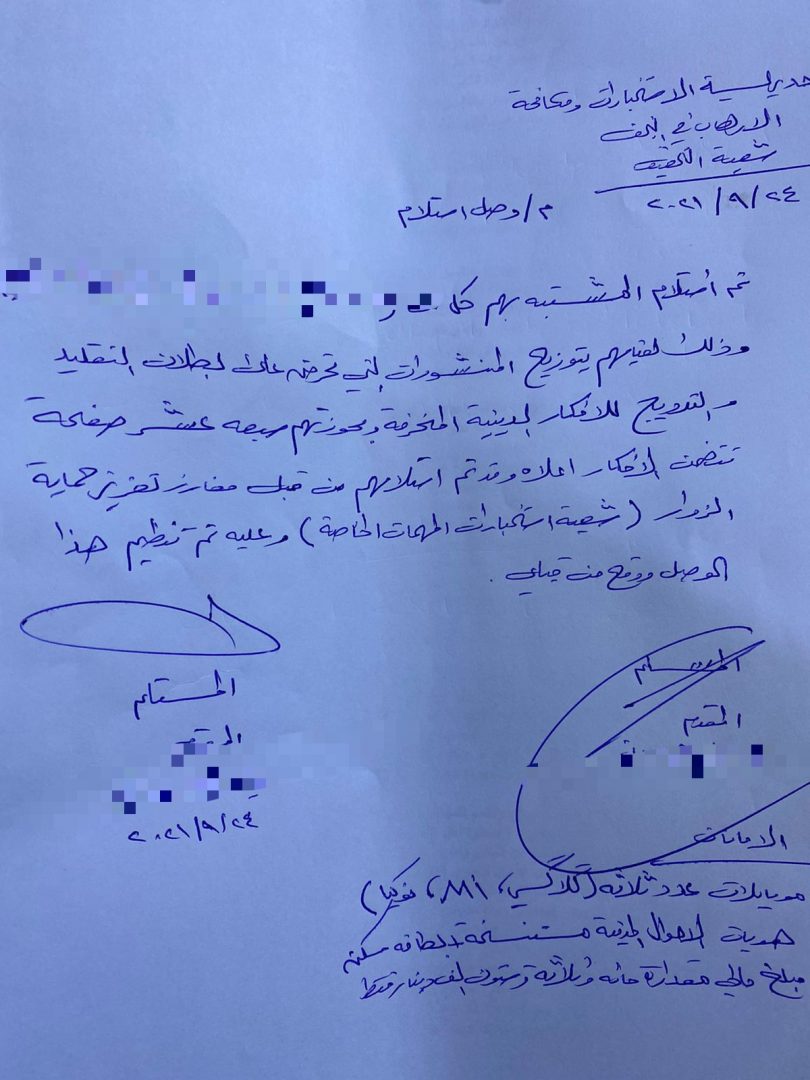 مديرية الاستخبارات ومكافحة
الارهاب في النجف
شعبة التحقيق
٢٠٢١/٩/٢٤
م/وصل استلام
تم أستلام المشتبه بهم كل من
وذلك لقيامهم بتوزيع المنشورات التي تحرض على بطلان التقليد
والترويج للأفكار الدينية المنحرفة وبحوزتهم سبعه عشر صفحة
تتضمن الأفكار اعلاه وقد تم استلامهم من قبل مفارز تعزيز حماية
الزوار (شعبة استخبارات المهمات الخاصة) وعليه تم تنظيم هذا
الوصل ووقع من قبلي .
المستلم
٢٠٢١/٩/٢٤
المقدم
الامانات
موبايلات عدد ثلاثه (كلاكسي، MI، نوكيا)
هويات الاحوال المدنية مستنسخة + بطاقه سكن
مبلغ مالي مقداره مائه وثلاثة وستون الف دينار فقط